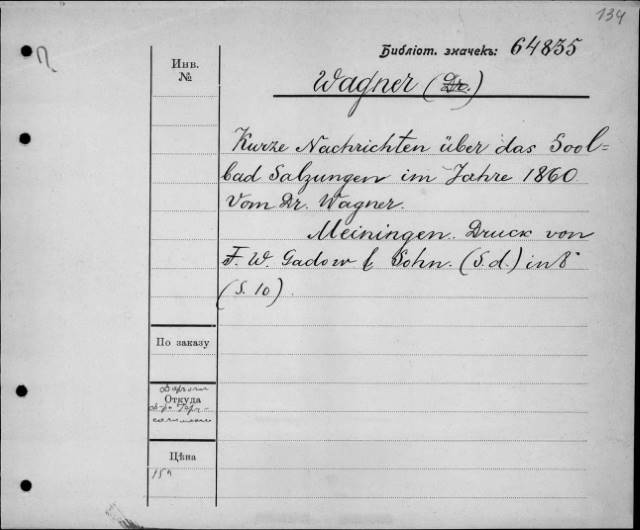 134
Библіот. значекъ: 64835
Инв.
№
Wagner (Dr.)
Kurze Nachrichten über das Sool=
bad Salzungen im Jahre 1860.
Vom Dr. Wagner.
Meiningen. Druck von
F. W. Gadow & Sohn. (S.d.) in 8°
(S. 10).
По заказу
Откуда
Цѣна
15